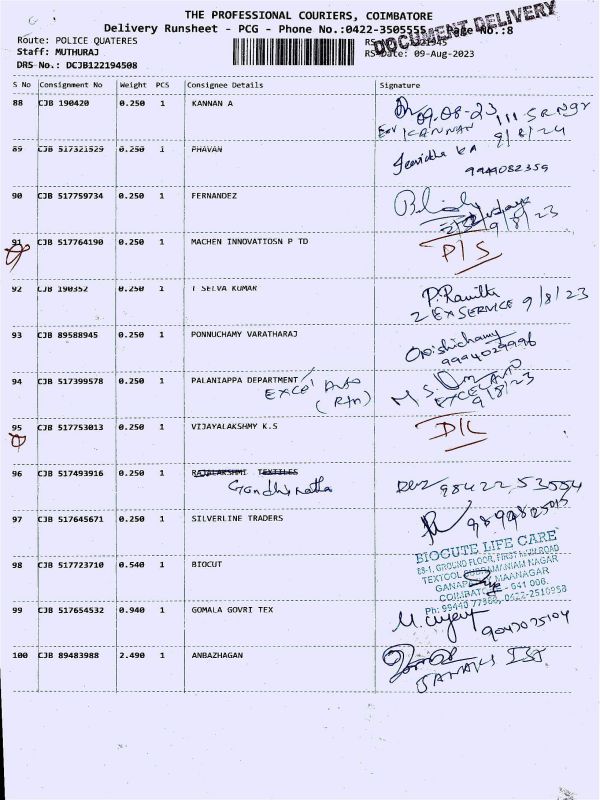 THE PROFESSIONAL COURIERS, COIMBATORE
Delivery Runsheet - PCG - Phone No.:0422-3505555 Page No.:8
DOCUMENT DELIVERY
Route: POLICE QUATERES
Staff: MUTHURAJ
RS Date: 09-Aug-2023
DRS No.: DCJB122194508
S No Consignment No Weight PCS Consignee Details Signature
88 CJB 190420 0.250 1 KANNAN A
09-08-23
KANNAN 9/8/24
89 CJB 517321529 0.250 1 PHAVAN
9944082359
90 CJB 517759734 0.250 1 FERNANDEZ
9/8/23
91 CJB 517764190 0.250 1 MACHEN INNOVATIOSN P TD
P/S
92 CJB 190352 0.250 1 T SELVA KUMAR
P. Ranitha
2 EX SERVICE 9/8/23
93 CJB 89588945 0.250 1 PONNUCHAMY VARATHARAJ
9994029996
94 CJB 517399578 0.250 1 PALANIAPPA DEPARTMENT
EXCEL Auto
(Rtn)
EXCEL AUTO
9/8/23
95 CJB 517753013 0.250 1 VIJAYALAKSHMY K.S
D/L
96 CJB 517493916 0.250 1 RAJALAKSHMI TEXTILES
98422 53554
97 CJB 517645671 0.250 1 SILVERLINE TRADERS
98 CJB 517723710 0.540 1 BIOCUT
BIOCUTE LIFE CARE
GROUND FLOOR, FIRST
TEXTOOL SUBRAMANIAM NAGAR
MAANAGAR
COIMBATORE - 641 006.
0422-2510958
99 CJB 517654532 0.940 1 GOMALA GOVRI TEX
9043025104
100 CJB 89483988 2.490 1 ANBAZHAGAN